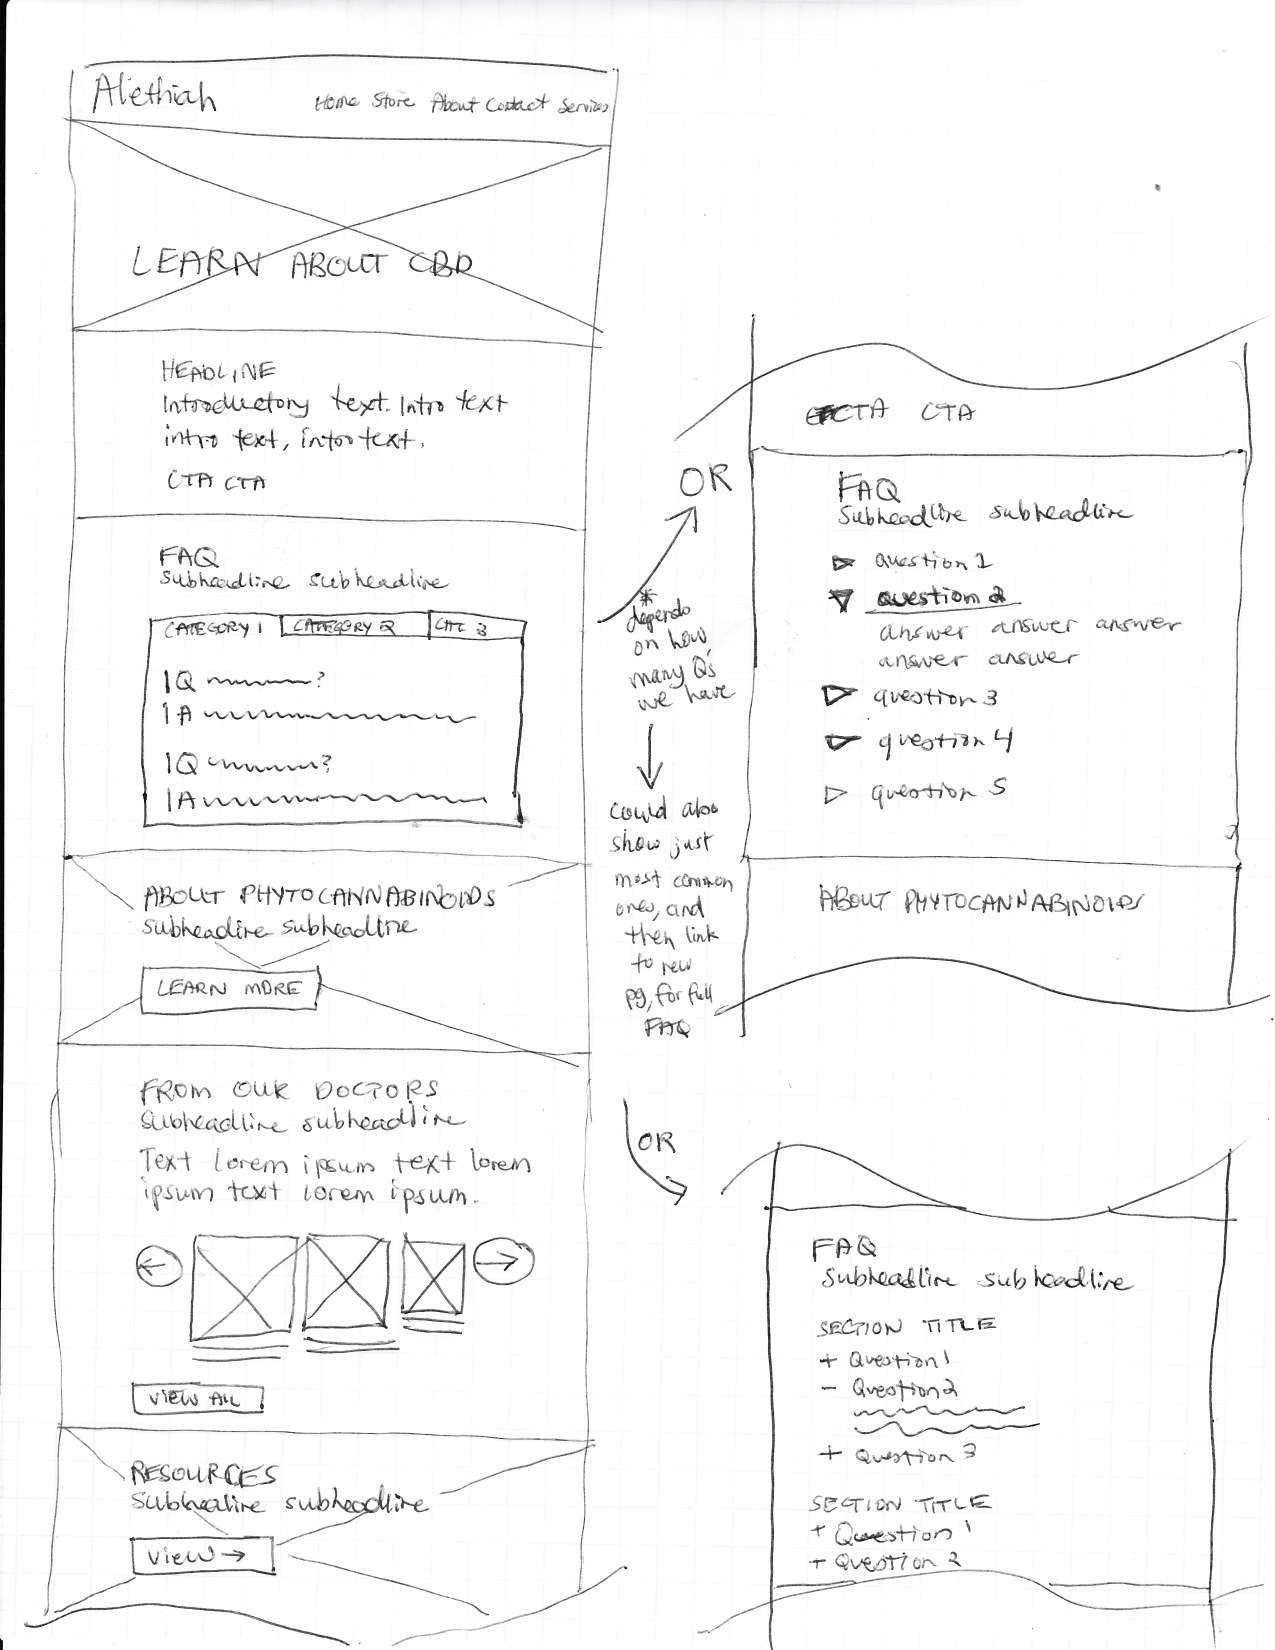 Alethiah
Home Store About Contact Services
LEARN ABOUT CBD
HEADLINE
Introductory text. Intro text
intro text, intro text.
CTA CTA
FAQ
Subheadline subheadline
CATEGORY 1 CATEGORY 2 CAT 3
1Q ?
1A
1Q ?
1A
ABOUT PHYTOCANNABINOIDS
subheadline subheadline
LEARN MORE
FROM OUR DOCTORS
Subheadline subheadline
Text lorem ipsum text lorem
ipsum text lorem ipsum.
←
→
VIEW ALL
RESOURCES
Subhealine subheadline
VIEW →
OR
*
depends
on how
many Q's
we have
could also
show just
most common
ones, and
then link
to new
pg, for full
FAQ
CTA CTA
FAQ
Subheadline subheadline
question 1
question 2
answer answer answer
answer answer
question 3
question 4
question 5
ABOUT PHYTOCANNABINOIDS
OR
FAQ
Subheadline subheadline
SECTION TITLE
+ Question 1
- Question 2
+ Question 3
SECTION TITLE
+ Question 1
+ Question 2